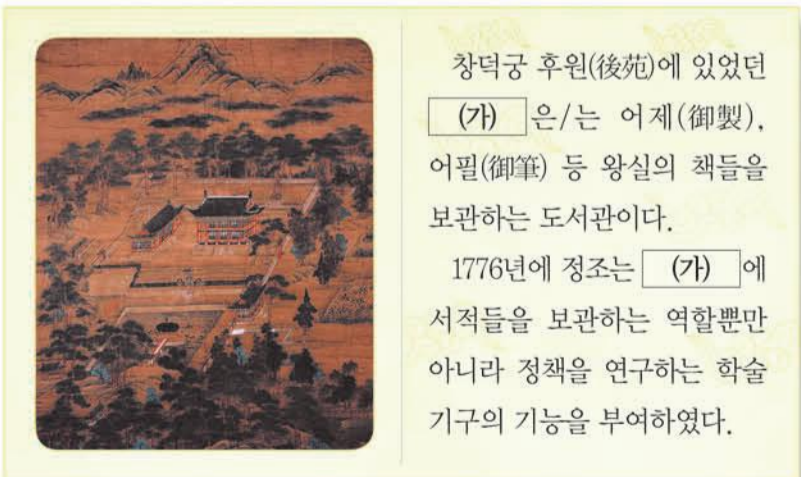 창덕궁 후원(後苑)에 있었던
(가) 은/는 어제(御製),
어필(御筆) 등 왕실의 책들을
보관하는 도서관이다.
1776년에 정조는 (가) 에
서적들을 보관하는 역할뿐만
아니라 정책을 연구하는 학술
기구의 기능을 부여하였다.